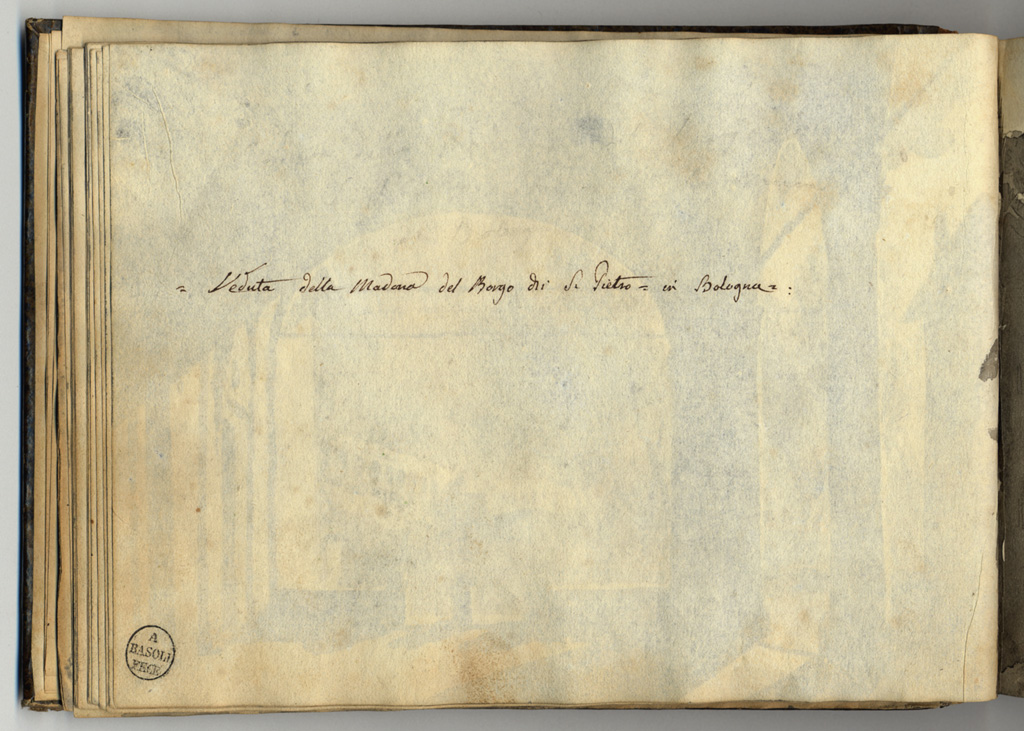 = Veduta della Madona del Borgo di S. Pietro = in Bologna = :
A
BASOLI
FECE